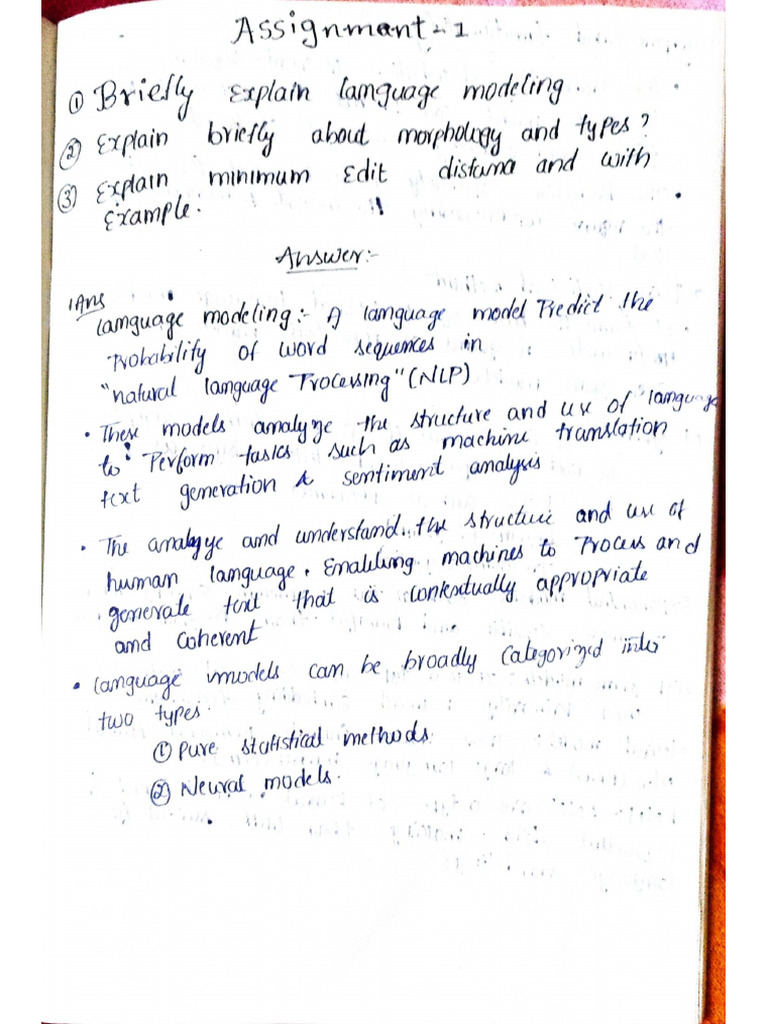 Assignment - 1
① Briefly Explain language modeling.
② Explain briefly about morphology and types?
③ Explain minimum Edit distana and with
Example.
Answer:-
1Ans
language modeling:- A language model Predict the
Probability of word sequences in
"natural language Processing" (NLP)
• These models analyze the structure and use of "language
to Perform tasks such as machine translation
text generation & sentiment analysis
• The analyze and understand. the structure and use of
human language. Enabling machines to Process and
generate text that is contextually appropriate
and coherent
• language models can be broadly Categorized into
two types
① Pure statistical methods.
② Neural models.